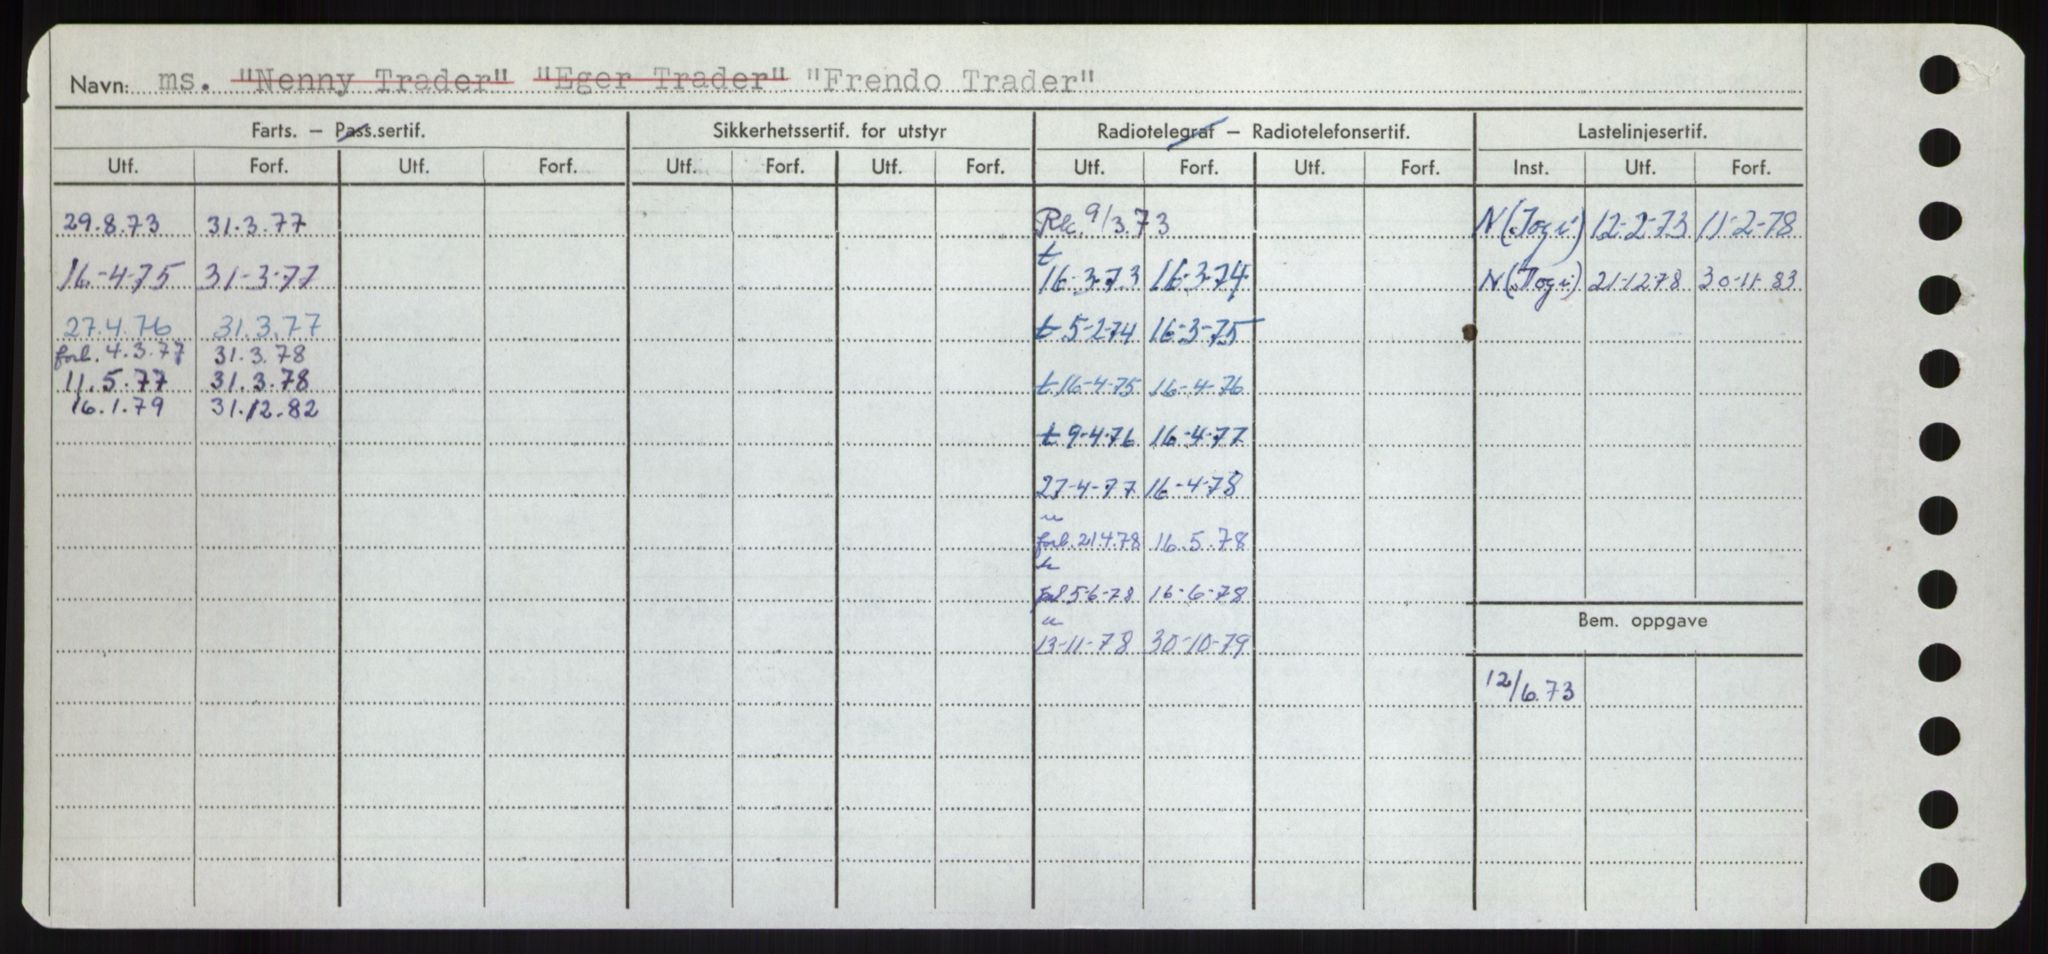 Navn: ms. "Nenny Trader" "Eger Trader" "Frendo Trader"
Farts. – Pass.sertif. Sikkerhetssertif. for utstyr Radiotelegraf – Radiotelefonsertif. Lastelinjesertif.
Utf. Forf. Utf. Forf. Utf. Forf. Utf. Forf. Utf. Forf. Utf. Forf. Inst. Utf. Forf.
29.8.73 31.3.77 Rk. 9/3.73 N (Togi) 12-2-73 11-2-78
t
16-4-75 31-3-77 16-3-73 16-3-74 N (Togi) 21-12-78 30-11-83
27.4.76 31.3.77 t 5-2-74 16-3-75
forl. 4.3.77 31.3.78
11.5.77 31.3.78 t 16-4-75 16-4-76
16.1.79 31.12.82
t 9-4-76 16-4-77
27-4-77 16-4-78
forl. 21.4.78 16.5.78
5-6-78 16-6-78
13-11-78 30-10-79
Bem. oppgave
12/6.73